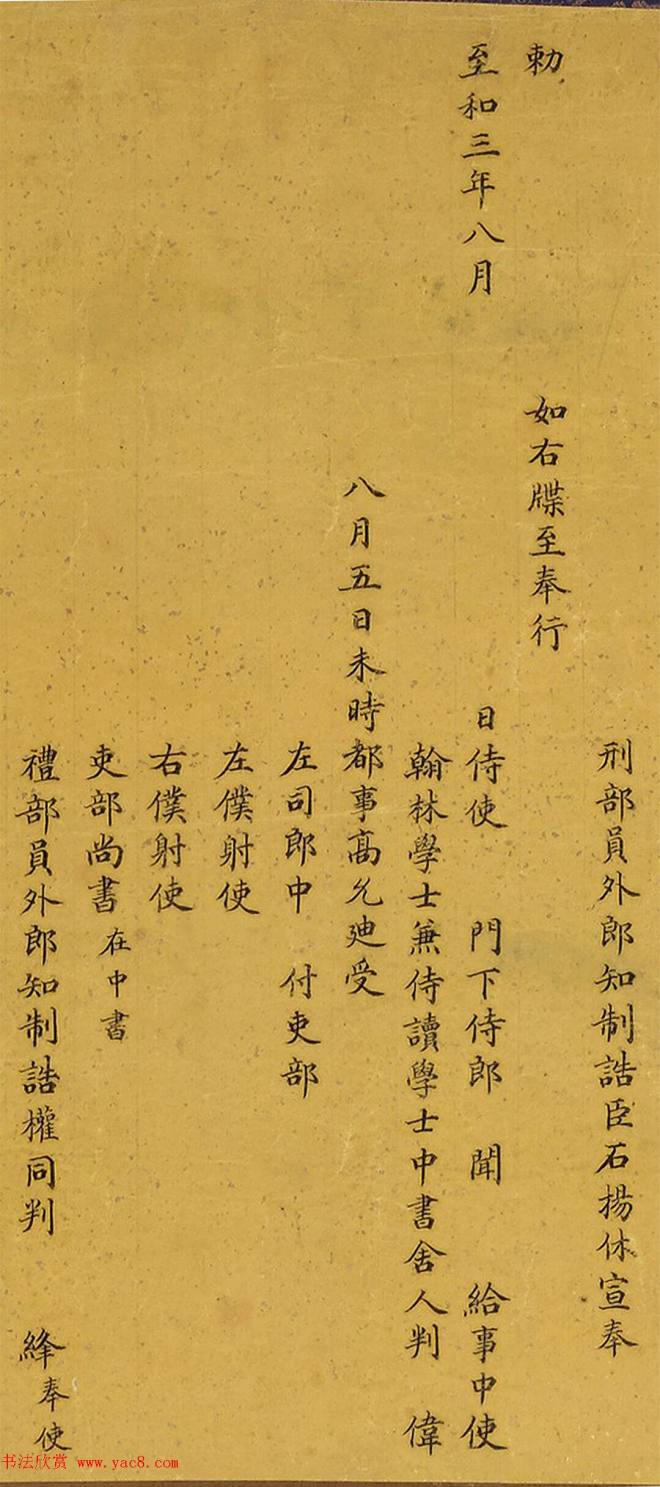 刑部員外郎知制誥臣石揚休宣奉
勅
如右牒至奉行
至和三年八月 日侍使 門下侍郎 聞 給事中使
翰林學士兼侍讀學士中書舍人判 偉
八月五日未時都事高允迪受
左司郎中 付吏部
左僕射使
右僕射使
吏部尚書在中書
禮部員外郎知制誥權同判 絳奉使
书法欣赏 www.yac8.com